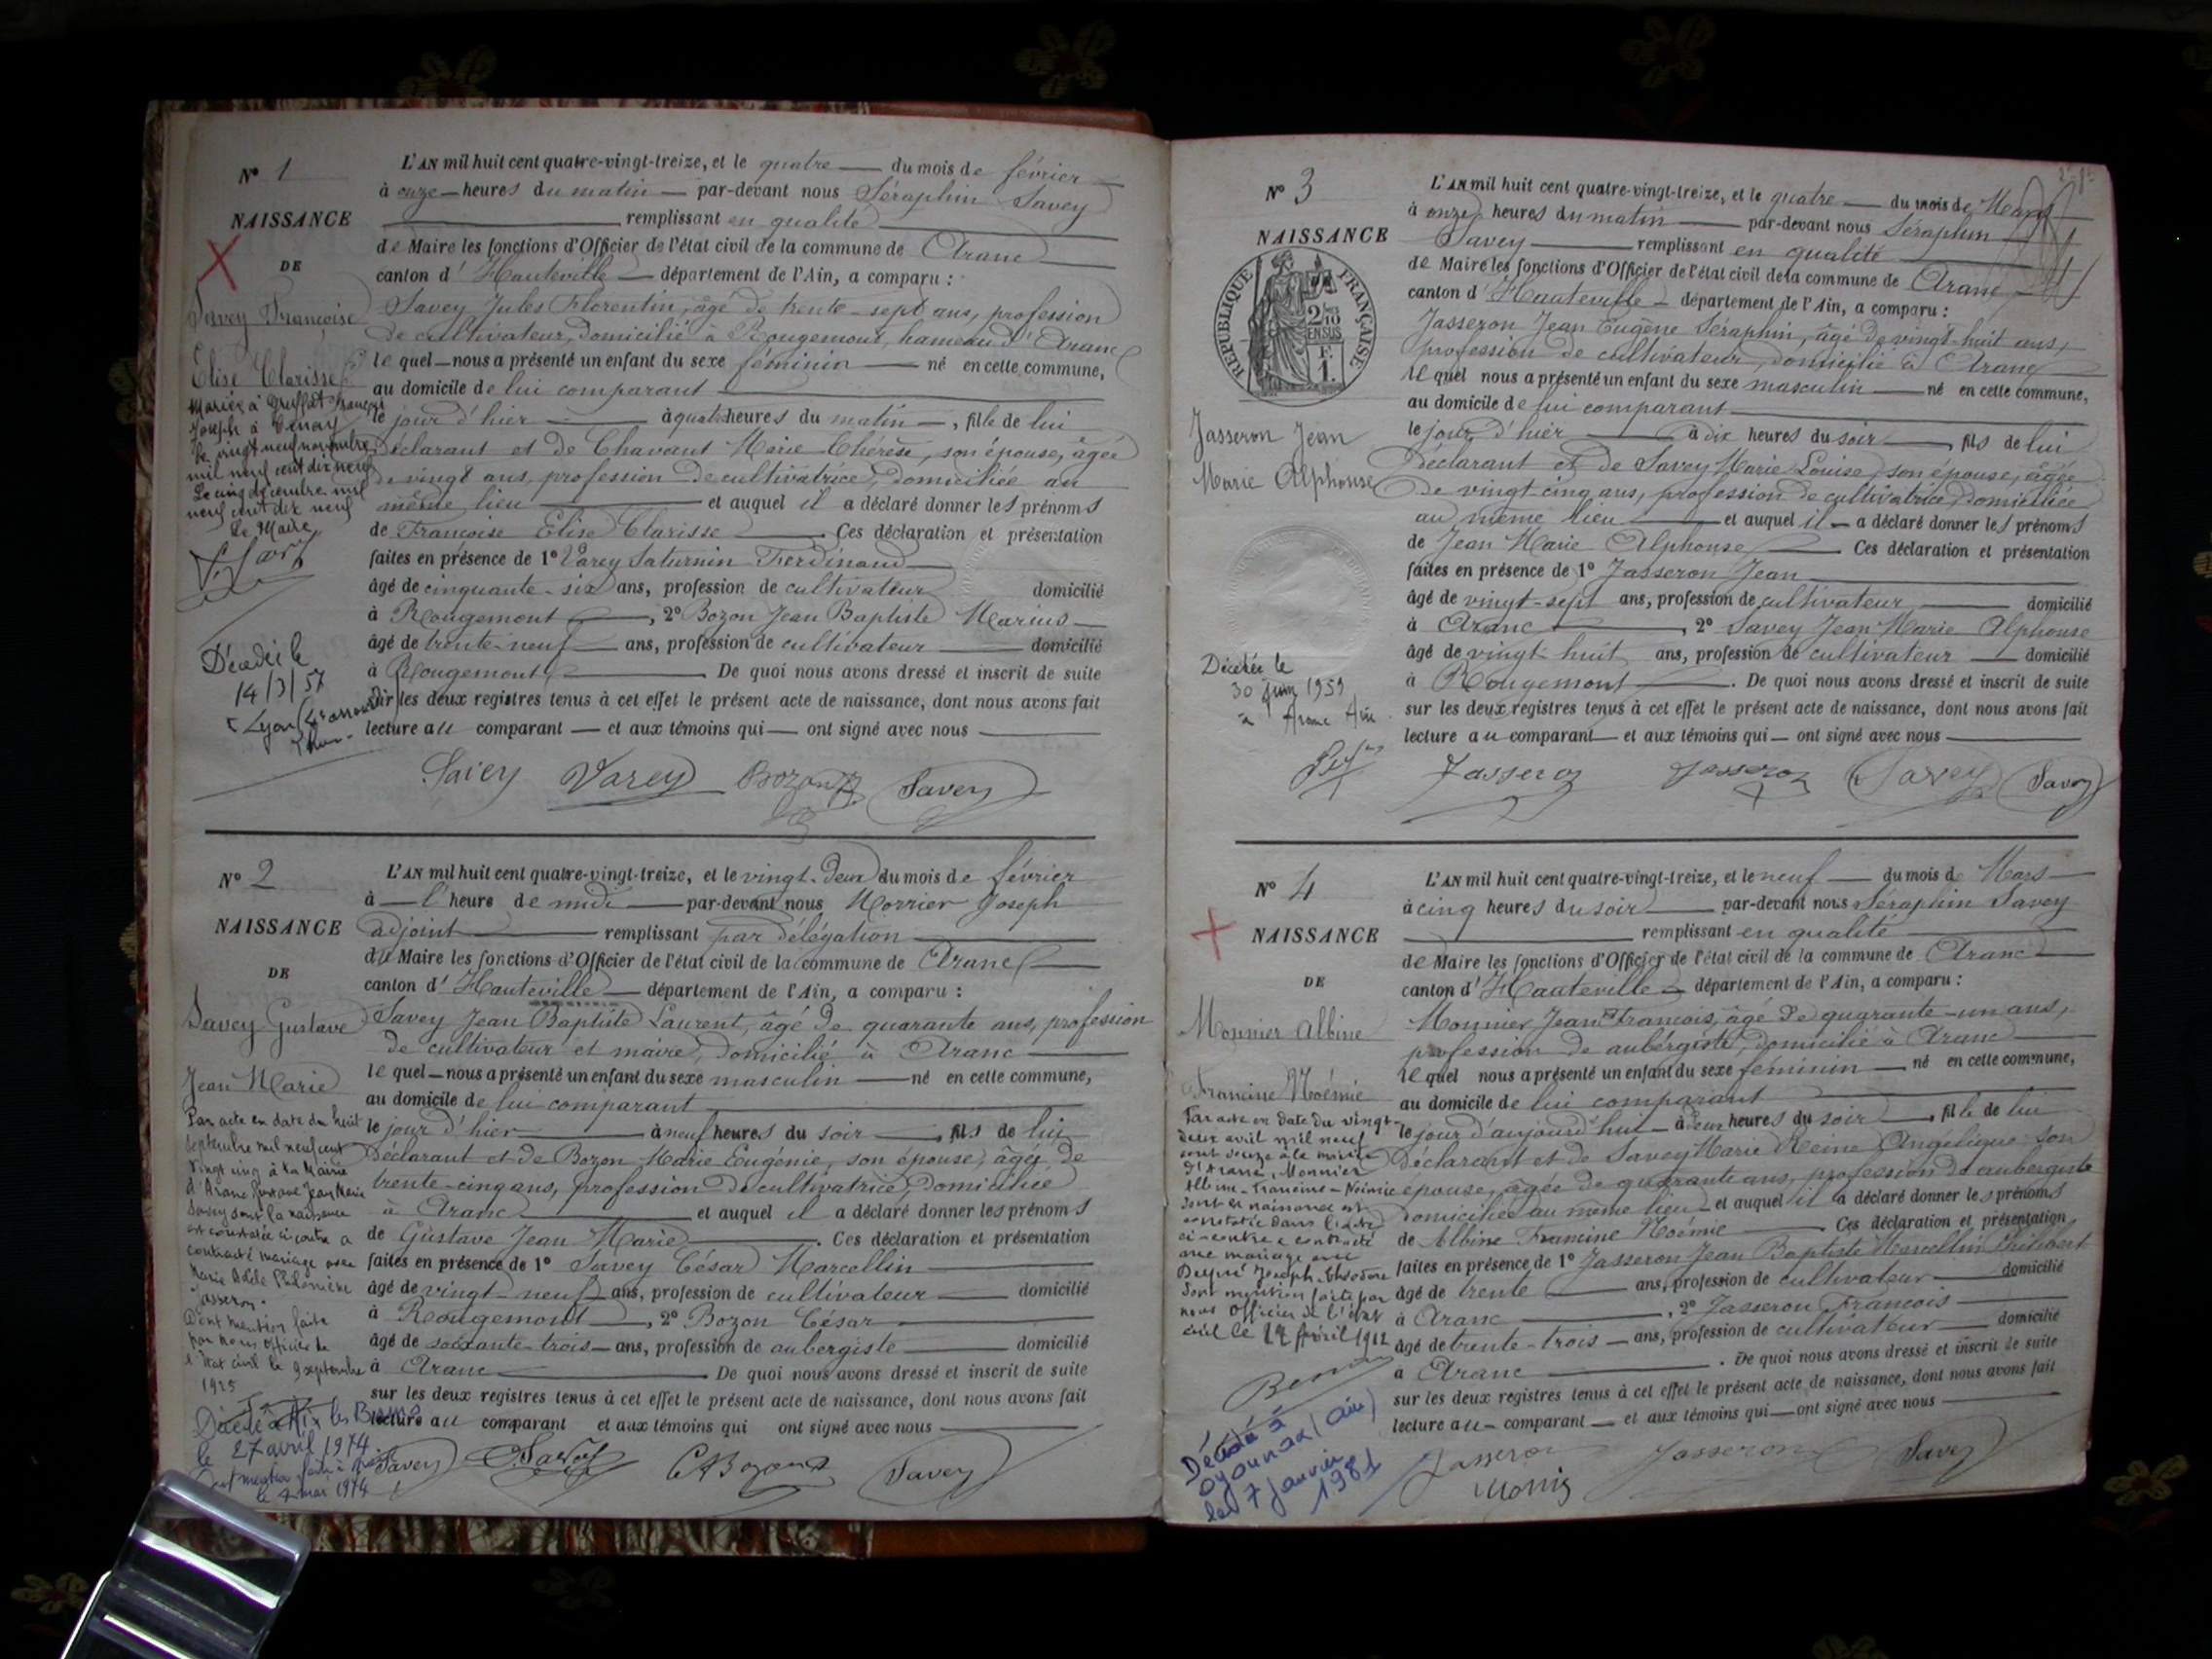 N° 1
NAISSANCE
DE
Savey Françoise
Elise Clarisse
Mariée à Françoi
Joseph à Tenay
le vingt neuf novembre
mil neuf cent dix neuf
Le cinq décembre mil
neuf cent dix neuf
Le Maire
Décédée le
14/3/57
à Lyon
L'AN mil huit cent quatre-vingt-treize, et le quatre du mois de février
à onze heures du matin par-devant nous Séraphin Savey
remplissant en qualité
de Maire les fonctions d'Officier de l'état civil de la commune de Aranc
canton d'Hauteville département de l'Ain, a comparu :
Savey Jules Florentin, âgé de trente-sept ans, profession
de cultivateur, domicilié à Rougemont, hameau d'Aranc
lequel nous a présenté un enfant du sexe féminin né en cette commune,
au domicile de lui comparant
le jour d'hier à quatre heures du matin, fille de lui
déclarant et de Chavant Marie Thérèse, son épouse, âgée
de vingt ans, profession de cultivatrice, domiciliée au
même lieu et auquel il a déclaré donner les prénoms
de Françoise Elise Clarisse Ces déclaration et présentation
faites en présence de 1° Varey Saturnin Ferdinand
âgé de cinquante-six ans, profession de cultivateur domicilié
à Rougemont, 2° Bozon Jean Baptiste Marius
âgé de trente-neuf ans, profession de cultivateur domicilié
à Rougemont. De quoi nous avons dressé et inscrit de suite
sur les deux registres tenus à cet effet le présent acte de naissance, dont nous avons fait
lecture au comparant et aux témoins qui ont signé avec nous
Savey Varey Bozon Savey
N° 2
NAISSANCE
DE
Savey Gustave
Jean Marie
Par acte en date du huit
septembre mil neuf cent
vingt cinq à la Mairie
d'Aranc Gustave Jean Marie
Savey dont la naissance
est constatée ci contre a
contracté mariage avec
Marie Adèle Philomène
Jasseron.
Dont mention faite
par nous Officier de
l'Etat civil le 9 septembre
1925
Décédé à Aix les Bains
le 27 avril 1974.
le 2 mai 1974
L'AN mil huit cent quatre-vingt-treize, et le vingt-deux du mois de février
à l'heure de midi par-devant nous Morrier Joseph
adjoint remplissant par délégation
du Maire les fonctions d'Officier de l'état civil de la commune de Aranc
canton d'Hauteville département de l'Ain, a comparu :
Savey Jean Baptiste Laurent, âgé de quarante ans, profession
de cultivateur et maire, domicilié à Aranc
lequel nous a présenté un enfant du sexe masculin né en cette commune,
au domicile de lui comparant
le jour d'hier à neuf heures du soir, fils de lui
déclarant et de Bozon Marie Eugénie, son épouse, âgée de
trente-cinq ans, profession de cultivatrice, domiciliée
à Aranc et auquel il a déclaré donner les prénoms
de Gustave Jean Marie. Ces déclaration et présentation
faites en présence de 1° Savey César Marcellin
âgé de vingt-neuf ans, profession de cultivateur domicilié
à Rougemont, 2° Bozon César
âgé de soixante-trois ans, profession de aubergiste domicilié
à Aranc De quoi nous avons dressé et inscrit de suite
sur les deux registres tenus à cet effet le présent acte de naissance, dont nous avons fait
lecture au comparant et aux témoins qui ont signé avec nous
Savey Savey Bozon Savey
N° 3
NAISSANCE
RÉPUBLIQUE FRANÇAISE
2/10
EN SUS
1
Jasseron Jean
Marie Alphonse
Décédée le
30 juin 1959
à Aranc Ain
L'AN mil huit cent quatre-vingt-treize, et le quatre du mois de Mars
à onze heures du matin par-devant nous Séraphin
Savey remplissant en qualité
de Maire les fonctions d'Officier de l'état civil de la commune de Aranc
canton d'Hauteville département de l'Ain, a comparu :
Jasseron Jean Eugène Séraphin, âgé de vingt-huit ans,
profession de cultivateur, domicilié à Aranc
lequel nous a présenté un enfant du sexe masculin né en cette commune,
au domicile de lui comparant
le jour d'hier à dix heures du soir, fils de lui
déclarant et de Savey Marie Louise, son épouse, âgée
de vingt-cinq ans, profession de cultivatrice, domiciliée
au même lieu et auquel il a déclaré donner les prénoms
de Jean Marie Alphonse. Ces déclaration et présentation
faites en présence de 1° Jasseron Jean
âgé de vingt-sept ans, profession de cultivateur domicilié
à Aranc, 2° Savey Jean Marie Alphonse
âgé de vingt huit ans, profession de cultivateur domicilié
à Rougemont. De quoi nous avons dressé et inscrit de suite
sur les deux registres tenus à cet effet le présent acte de naissance, dont nous avons fait
lecture au comparant et aux témoins qui ont signé avec nous
Jasseron Jasseron Savey Savey
N° 4
NAISSANCE
DE
Monnier Albine
Francine Noémie
Par acte en date du vingt-
deux avril mil neuf
cent douze à la mairie
d'Aranc, Monnier
Albine-Francine-Noémie
dont la naissance est
constatée dans l'acte
ci-contre a contracté
une mariage avec
Joseph Théodore
dont mention faite par
nous Officier de l'état
civil le Avril 1912
Décédée à
Oyonnax (Ain)
le 7 janvier
1981
L'AN mil huit cent quatre-vingt-treize, et le neuf du mois de Mars
à cinq heures du soir par-devant nous Séraphin Savey
remplissant en qualité
de Maire les fonctions d'Officier de l'état civil de la commune de Aranc
canton d'Hauteville département de l'Ain, a comparu :
Monnier Jean François, âgé de quarante-un ans,
profession de aubergiste, domicilié à Aranc
lequel nous a présenté un enfant du sexe féminin né en cette commune,
au domicile de lui comparant
le jour d'aujourd'hui à deux heures du soir, fille de lui
déclarant et de Savey Marie Reine Angélique son
épouse, âgée de quarante ans, profession de aubergiste
domiciliée au même lieu et auquel il a déclaré donner les prénoms
de Albine Francine Noémie. Ces déclaration et présentation
faites en présence de 1° Jasseron Jean Baptiste Marcellin Philibert
âgé de trente ans, profession de cultivateur domicilié
à Aranc, 2° Jasseron François
âgé de trente-trois ans, profession de cultivateur domicilié
à Aranc. De quoi nous avons dressé et inscrit de suite
sur les deux registres tenus à cet effet le présent acte de naissance, dont nous avons fait
lecture au comparant et aux témoins qui ont signé avec nous
Jasseron Jasseron Savey